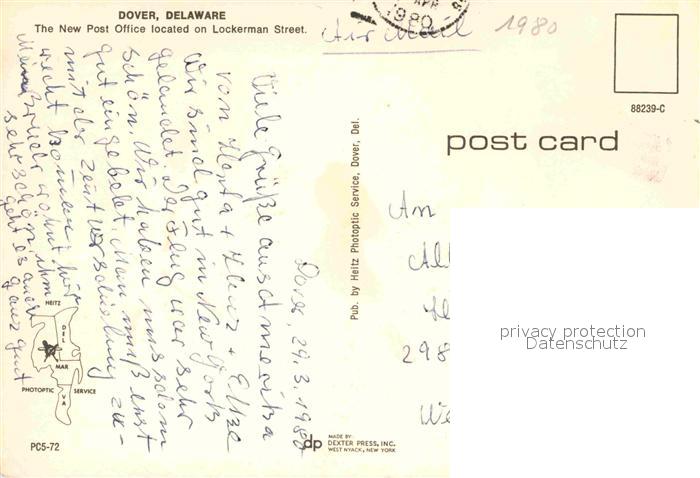 DOVER, DELAWARE
The New Post Office located on Lockerman Street.
Air Mail
APR
1980
1980
88239-C
post card
Dover, 29.3.1980
Viele Grüße aus Amerika
von Herta + Heinz + Elke
Wir sind gut in New York
gelandet. Der Flug war sehr
schön. Wir haben uns schon
gut eingelebt. Man muß erst
mit der Zeitverschiebung zu-
recht kommen.
Mein Bruder wohnt hier
sehr schön, ihm
geht es auch
ganz gut
Pub. by Heitz Photoptic Service, Dover, Del.
An
298
We
privacy protection
Datenschutz
HEITZ
DEL
MAR
VA
PHOTOPTIC SERVICE
PC5-72
dp
MADE BY:
DEXTER PRESS, INC.
WEST NYACK, NEW YORK